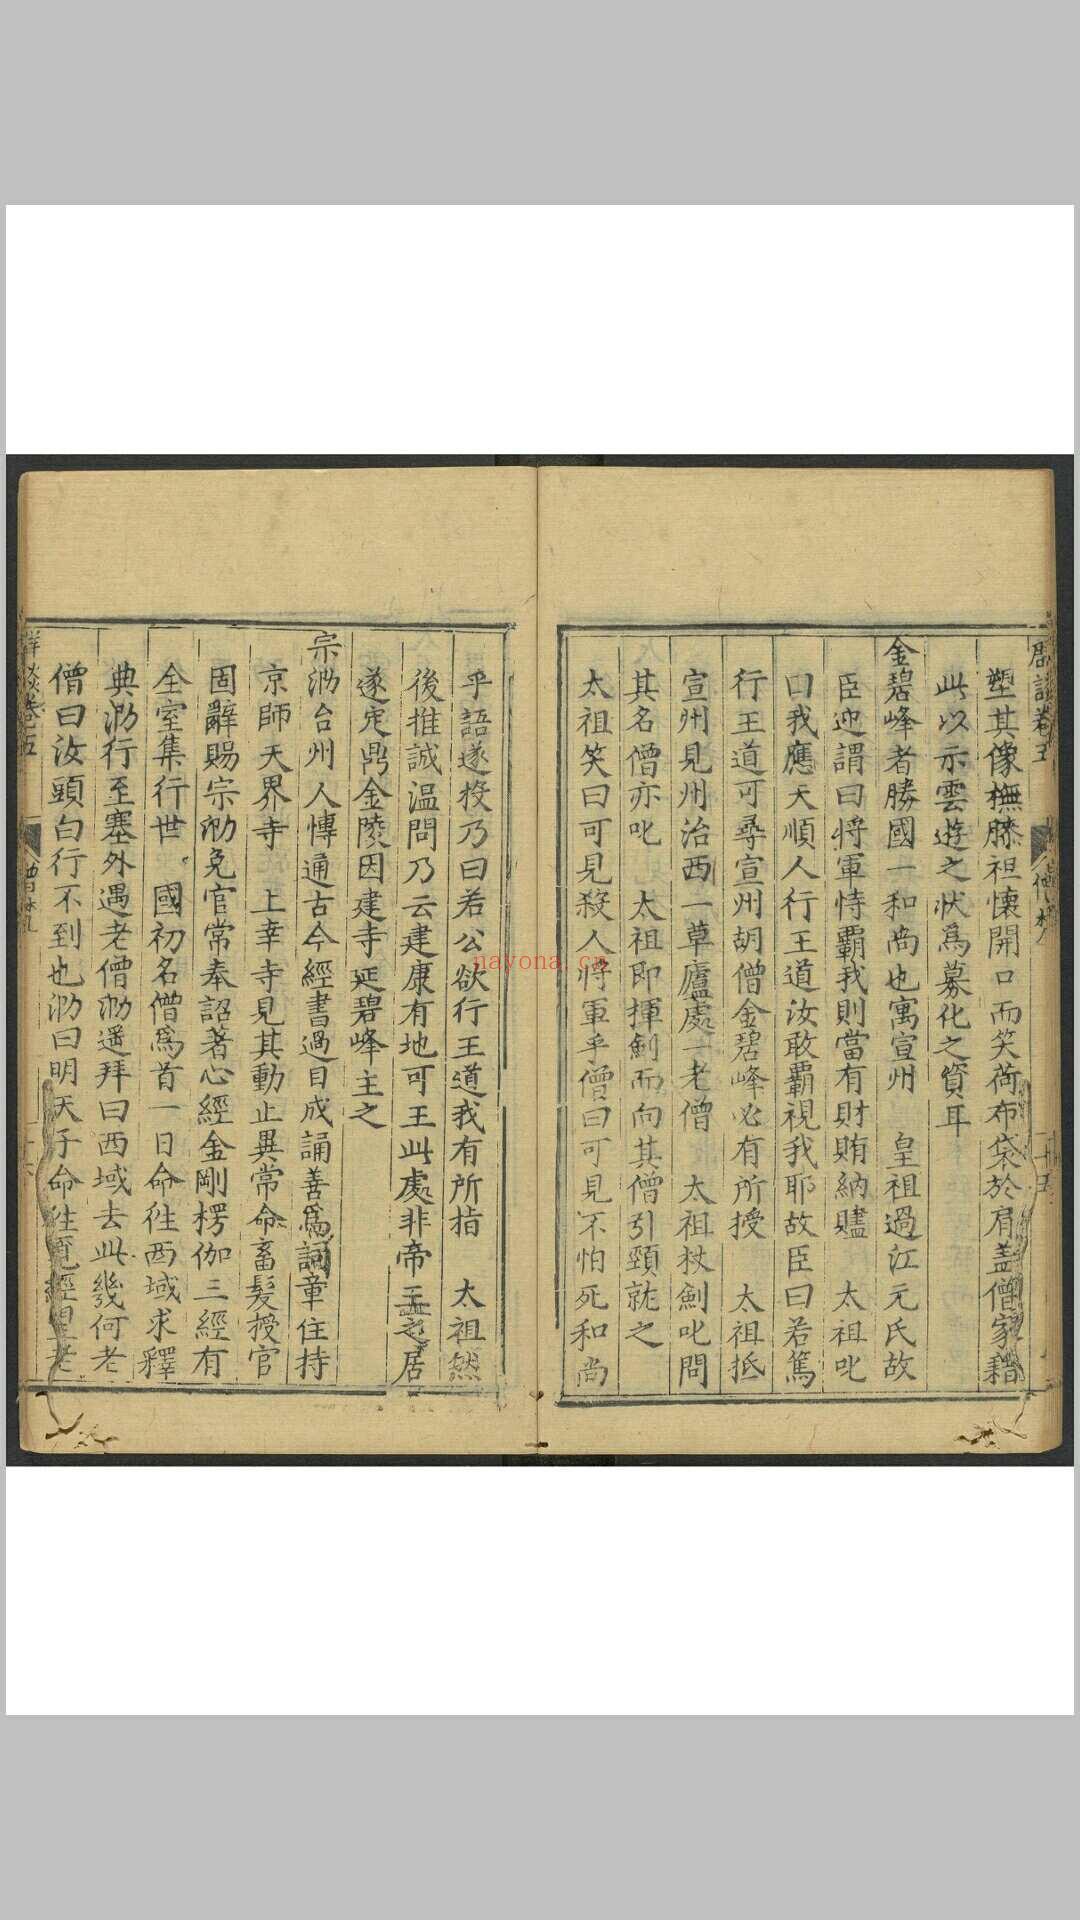 塑其像橅膝袒懷開口而笑荷布袋於肩盖僧家藉
此以示雲遊之狀爲募化之資耳
金碧峰者勝國一和尚也寓宣州 皇祖過江元氏故
臣迎謂曰將軍恃霸我則當有財賄納贐 太祖叱
曰我應天順人行王道汝敢霸視我耶故臣曰若篤
行王道可尋宣州胡僧金碧峰必有所授 太祖抵
宣州見州治西一草廬處一老僧 太祖杖劍叱問
其名僧亦叱 太祖即揮劍而向其僧引頸就之
太祖笑曰可見殺人將軍乎僧曰可見不怕死和尚
乎語遂投乃曰若公欲行王道我有所指 太祖然
後推誠温問乃云建康有地可王此處非帝王之居
遂定鼎金陵因建寺延碧峰主之
宗泐台州人博通古今經書過目成誦善爲詞章住持
京師天界寺 上幸寺見其動止異常命畜髮授官
固辭賜宗泐免官常奉詔著心經金剛楞伽三經有
全室集行世 國初名僧爲首一日命徃西域求釋
典泐行至塞外遇老僧泐遥拜曰西域去此幾何老
僧曰汝頭白行不到也泐曰明天子命徃覓經望老
nayona.cn